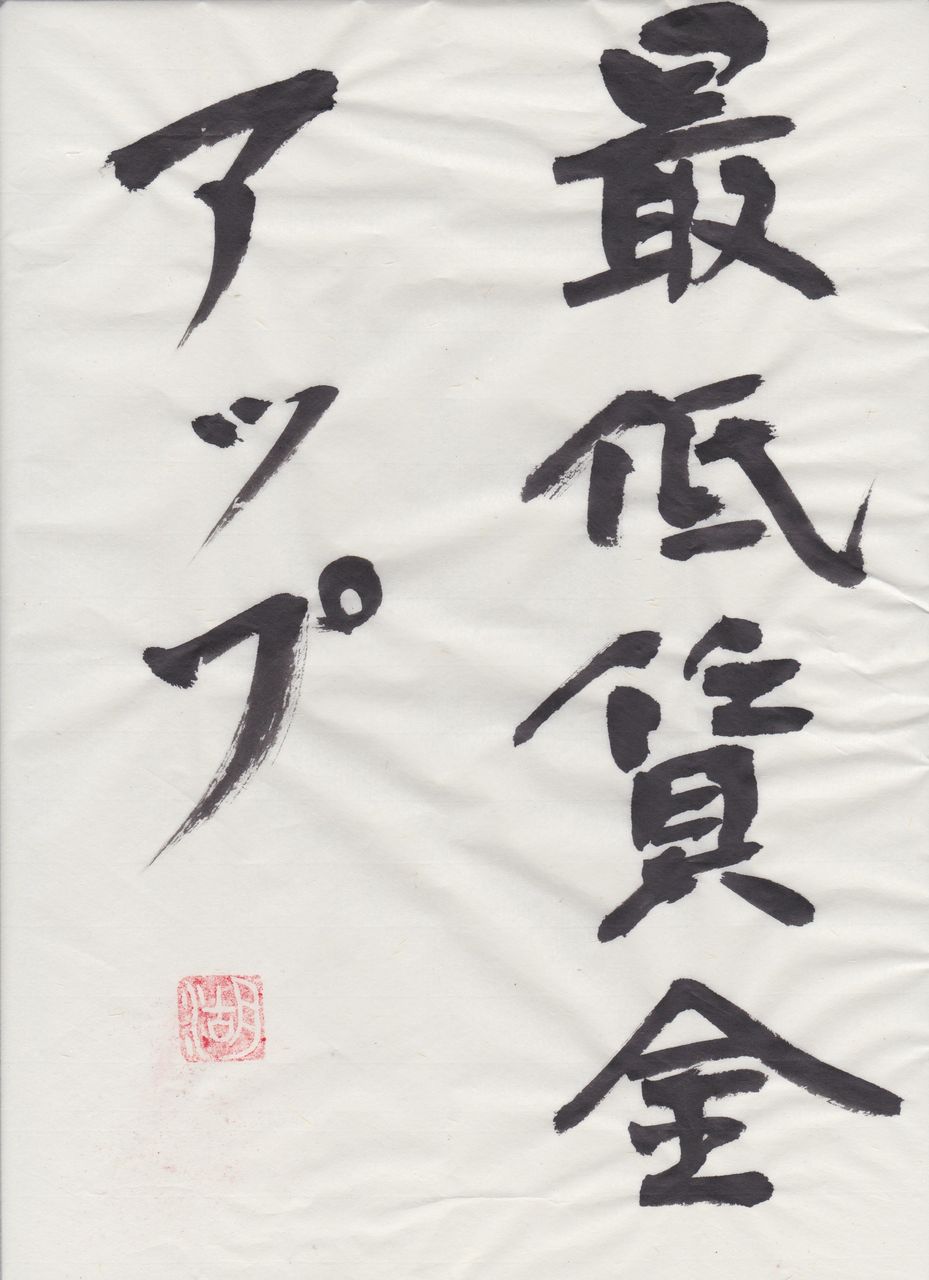 最低賃金
アップ
湖